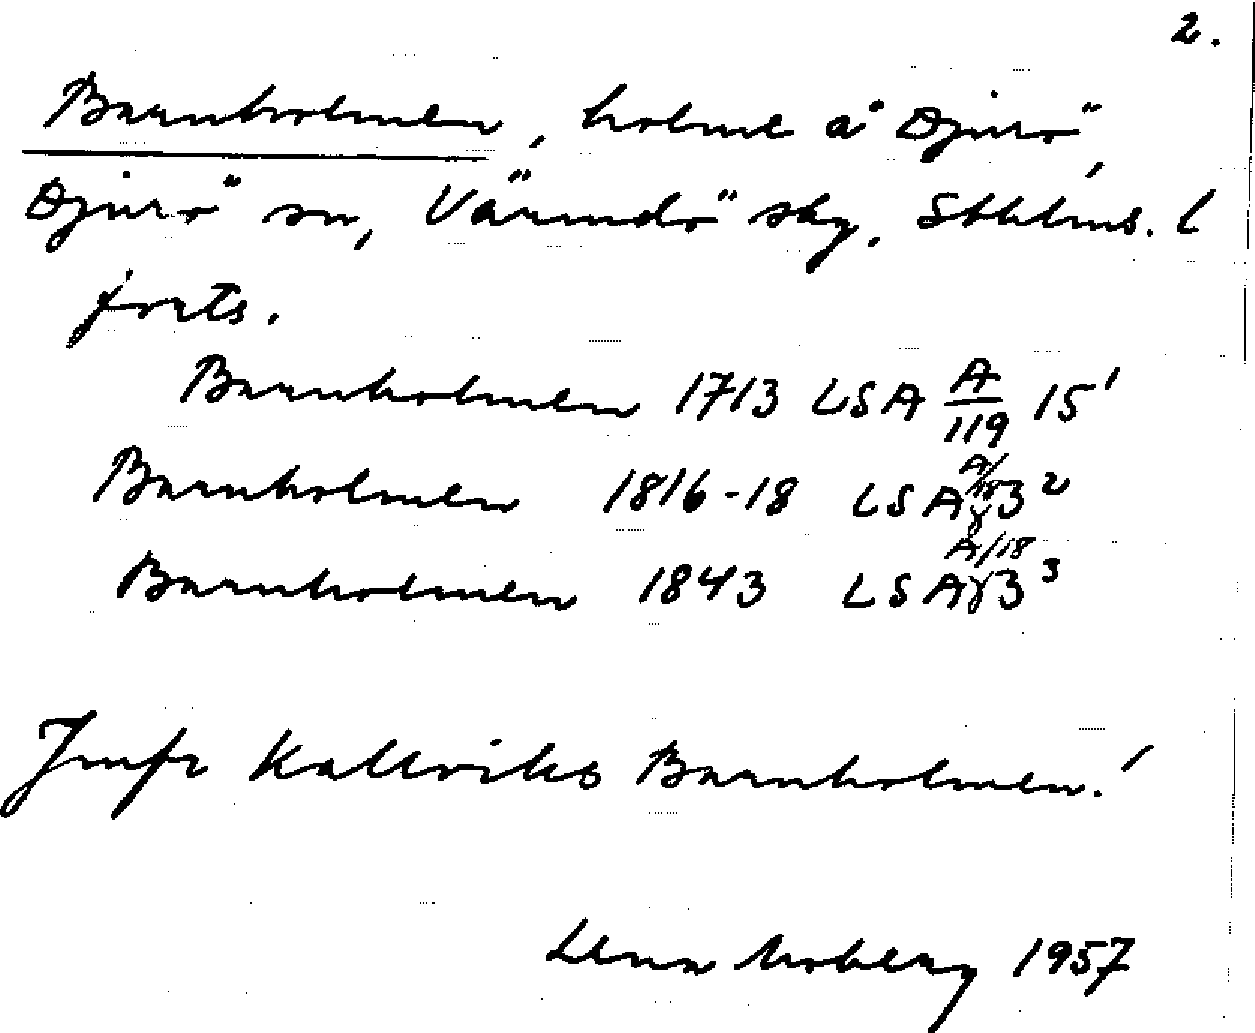 2.
Barnholmen, holme å Djurö,
Djurö sn, Värmdö skg, Sthlms. l
forts.
Barnholmen 1713 LSA A/119 15¹
Barnholmen 1816-18 LSA A/18 γ3²
Barnholmen 1843 LSA A/18 γ3³
Jmfr Kallviks Barnholmen!
Lena Moberg 1957